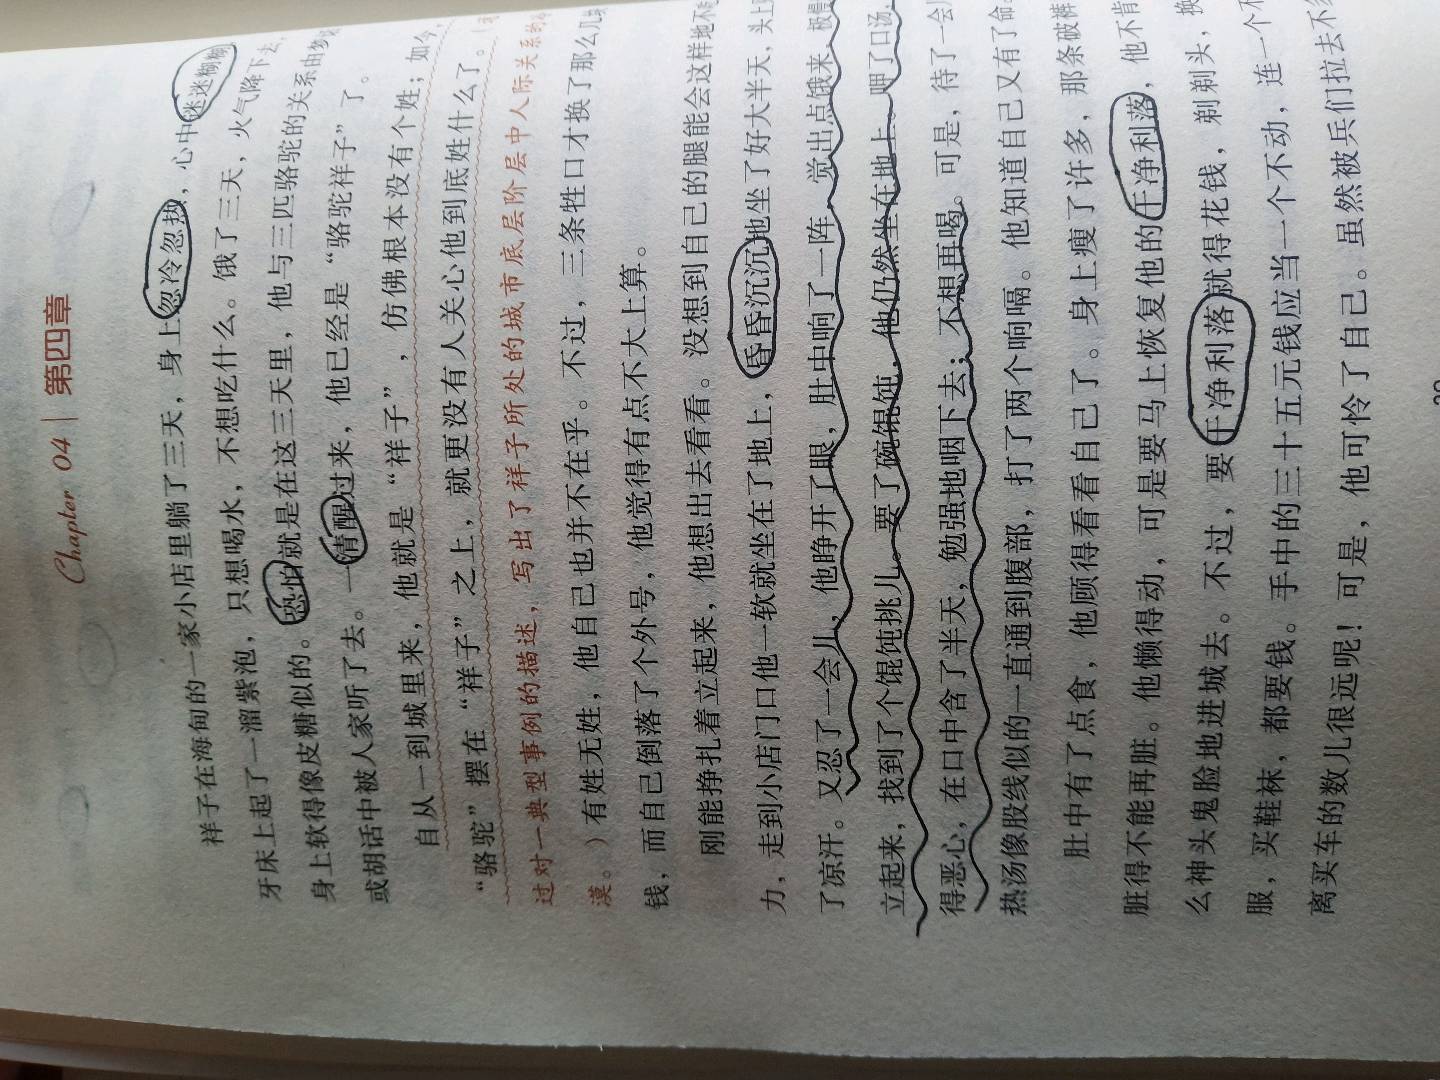 Chapter 04 | 第四章
祥子在海甸的一家小店里躺了三天，身上忽冷忽热，心中迷迷糊糊
牙床上起了一溜紫泡，只想喝水，不想吃什么。饿了三天，火气降下去，
身上软得像皮糖似的。恐怕就是在这三天里，他与三匹骆驼的关系由梦
或胡话中被人家听了去。一清醒过来，他已经是“骆驼祥子”了。
自从一到城里来，他就是“祥子”，仿佛根本没有个姓；如今，
“骆驼”摆在“祥子”之上，就更没有人关心他到底姓什么了。（
过对一典型事例的描述，写出了祥子所处的城市底层阶层中人际关系的
漠。）有姓无姓，他自己也并不在乎。不过，三条牲口才换了那么几块
钱，而自己倒落了个外号，他觉得有点不大上算。
刚能挣扎着立起来，他想出去看看。没想到自己的腿能会这样地不
力，走到小店门口他一软就坐在了地上，昏昏沉沉地坐了好大半天，头上
了凉汗。又忍了一会儿，他睁开了眼，肚中响了一阵，觉出点饿来。极慢
立起来，找到了个馄饨挑儿。要了碗馄饨，他仍然坐在地上。呷了口汤，
得恶心，在口中含了半天，勉强地咽下去；不想再喝。可是，待了一会儿
热汤像股线似的一直通到腹部，打了两个响嗝。他知道自己又有了命。
肚中有了点食，他顾得看看自己了。身上瘦了许多，那条破裤
脏得不能再脏。他懒得动，可是要马上恢复他的干净利落，他不肯
么神头鬼脸地进城去。不过，要干净利落就得花钱，剃剃头，换
服，买鞋袜，都要钱。手中的三十五元钱应当一个不动，连一个不
离买车的数儿很远呢！可是，他可怜了自己。虽然被兵们拉去不多